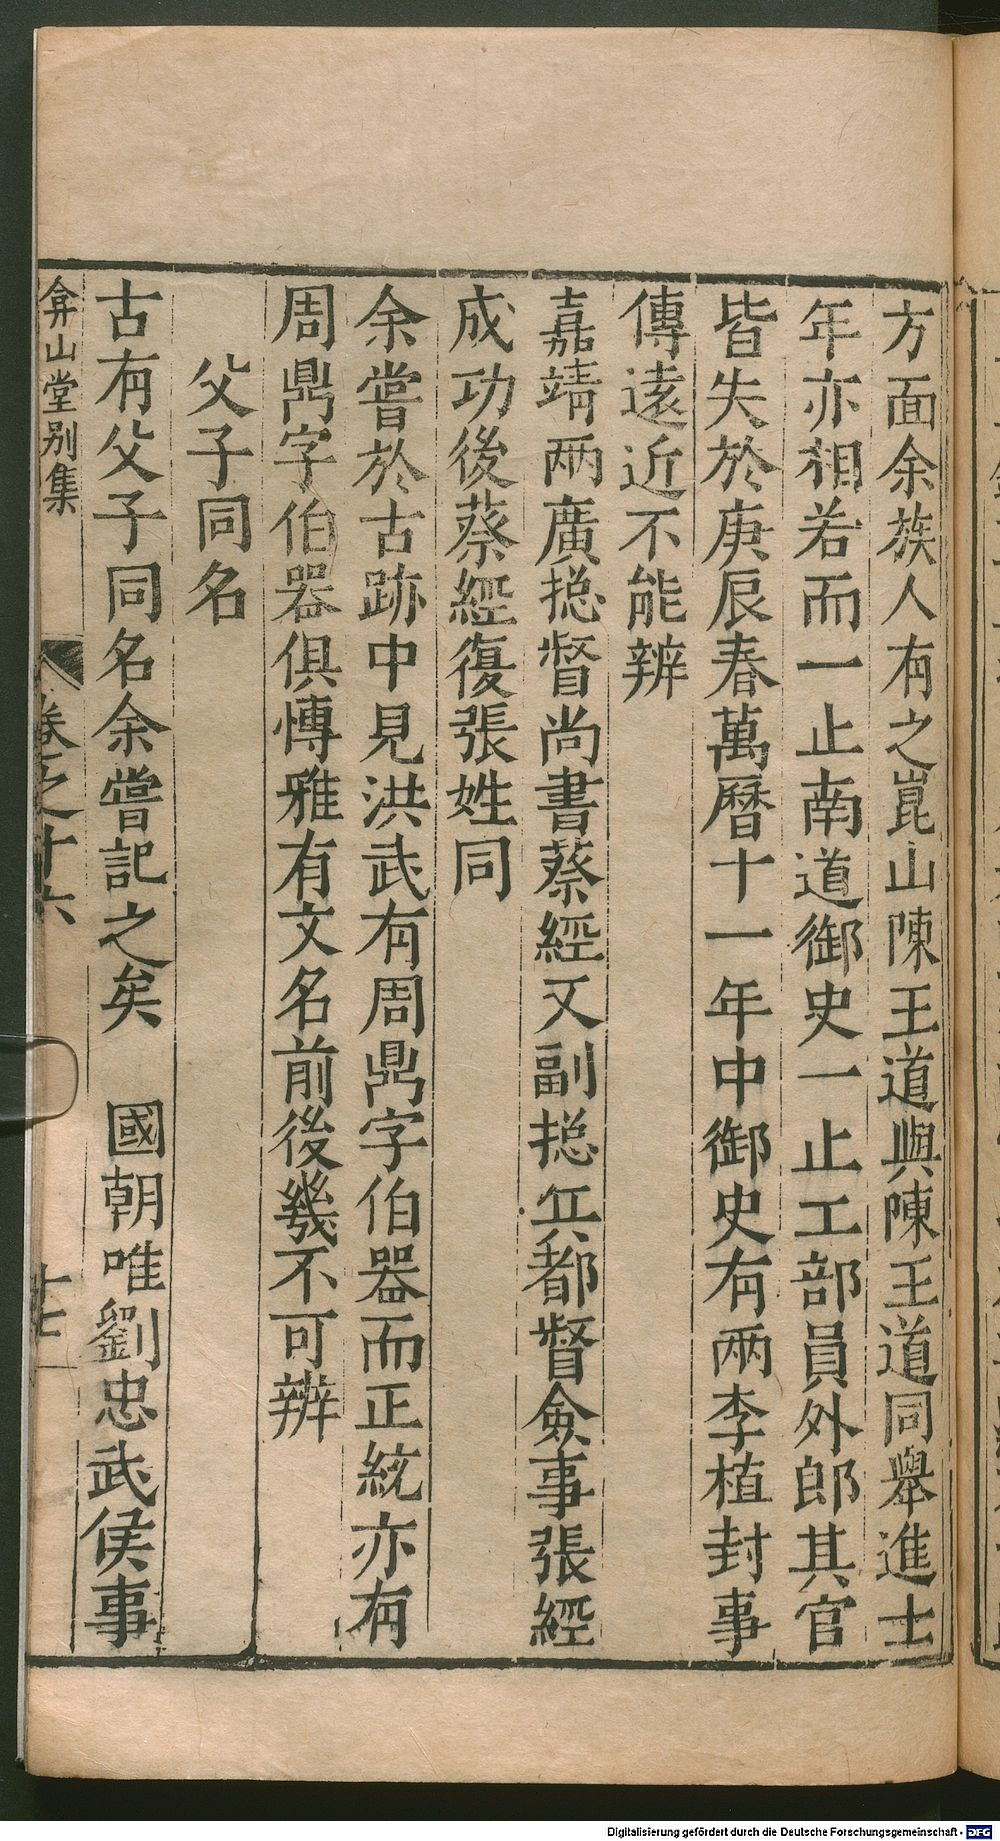 方面余族人有之崑山陳王道與陳王道同舉進士
年亦相若而一止南道御史一止工部員外郎其官
皆失於庚辰春萬曆十一年中御史有兩李植封事
傳遠近不能辨
嘉靖兩廣摠督尚書蔡經又副摠兵都督僉事張經
成功後蔡經復張姓同
余嘗於古跡中見洪武有周鼎字伯器而正統亦有
周鼎字伯器俱博雅有文名前後幾不可辨
父子同名
古有父子同名余嘗記之矣　國朝唯劉忠武侯事
弇山堂別集　卷之十六　十七
Digitalisierung gefördert durch die Deutsche Forschungsgemeinschaft - DFG